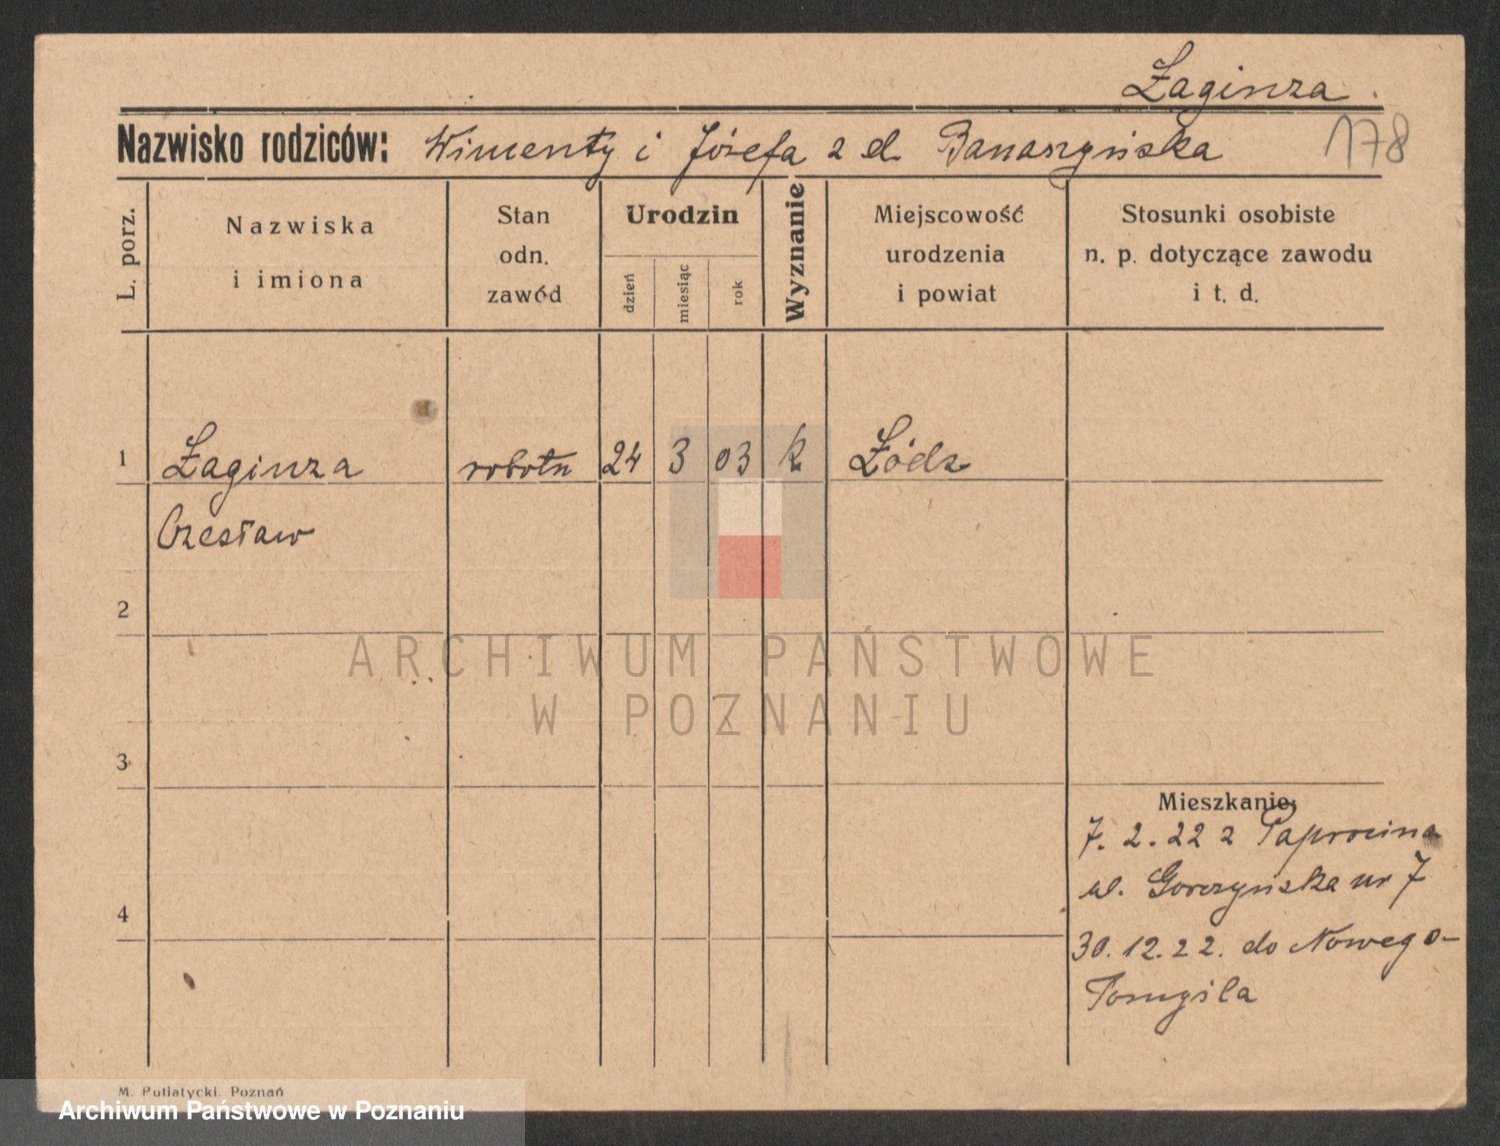 Łaginza.
Nazwisko rodziców: Wincenty i Józefa z d. Banaszyńska 178
L. porz.
Nazwiska
i imiona
Stan
odn.
zawód
Urodzin
dzień
miesiąc
rok
Wyznanie
Miejscowość
urodzenia
i powiat
Stosunki osobiste
n. p. dotyczące zawodu
i t. d.
1 Łaginza robotn 24 3 03 k Łódz
Czesław
2
ARCHIWUM PAŃSTWOWE
W POZNANIU
3
Mieszkanie:
7. 2. 22 z
ul. Gorczyńska nr 7
4
30. 12. 22. do Nowego-
Tomyśla
M. Putiatycki, Poznań
Archiwum Państwowe w Poznaniu